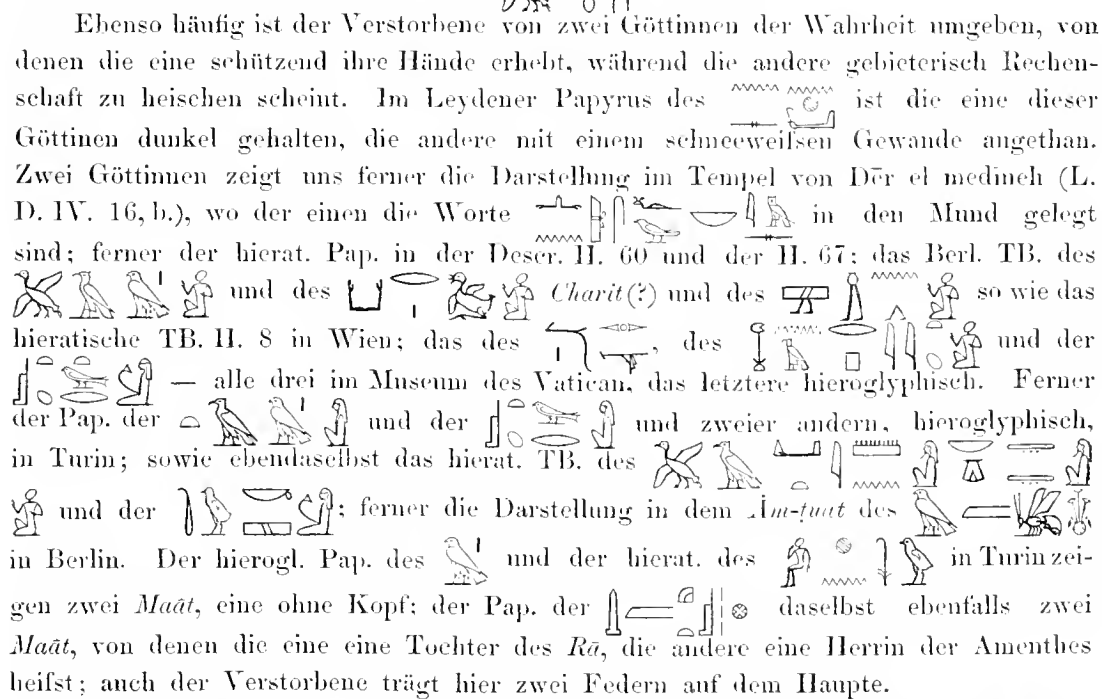 Ebenso häufig ist der Verstorbene von zwei Göttinnen der Wahrheit umgeben, von
denen die eine schützend ihre Hände erhebt, während die andere gebieterisch Rechen-
schaft zu heischen scheint. Im Leydener Papyrus des ist die eine dieser
Göttinen dunkel gehalten, die andere mit einem schneeweifsen Gewande angethan.
Zwei Göttinnen zeigt uns ferner die Darstellung im Tempel von Dēr el medineh (L.
D. IV. 16, b.), wo der einen die Worte in den Mund gelegt
sind; ferner der hierat. Pap. in der Descr. II. 60 und der II. 67; das Berl. TB. des
und des Charit(?) und des so wie das
hieratische TB. II. 8 in Wien; das des , des und der
— alle drei im Museum des Vatican, das letztere hieroglyphisch. Ferner
der Pap. der und der und zweier andern, hieroglyphisch,
in Turin; sowie ebendaselbst das hierat. TB. des
und der ; ferner die Darstellung in dem Ȧm-ṭuat des
in Berlin. Der hierogl. Pap. des und der hierat. des in Turin zei-
gen zwei Maāt, eine ohne Kopf; der Pap. der daselbst ebenfalls zwei
Maāt, von denen die eine eine Tochter des Rā, die andere eine Herrin der Amenthes
heifst; auch der Verstorbene trägt hier zwei Federn auf dem Haupte.